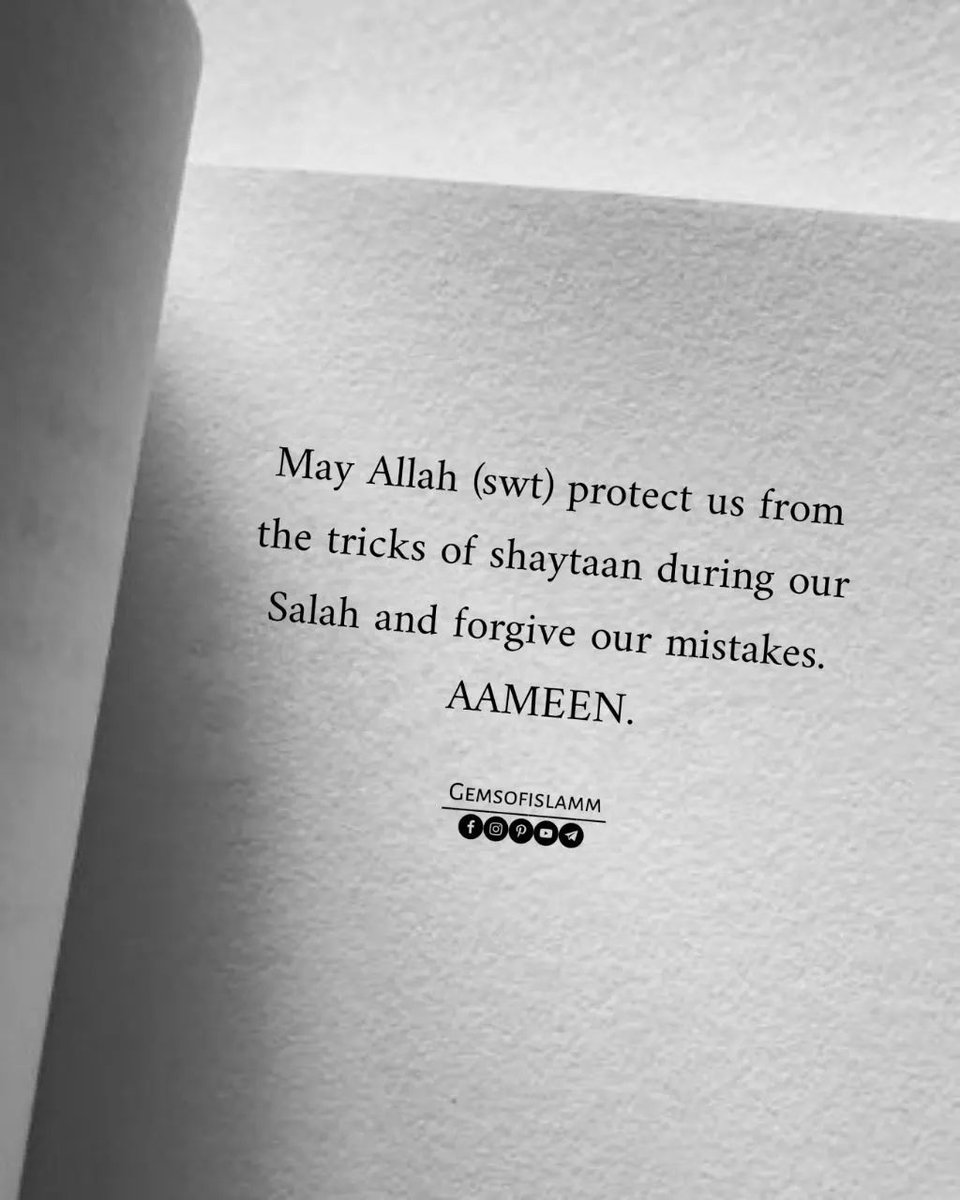 May Allah (swt) protect us from
the tricks of shaytaan during our
Salah and forgive our mistakes.
AAMEEN.
GEMSOFISLAMM